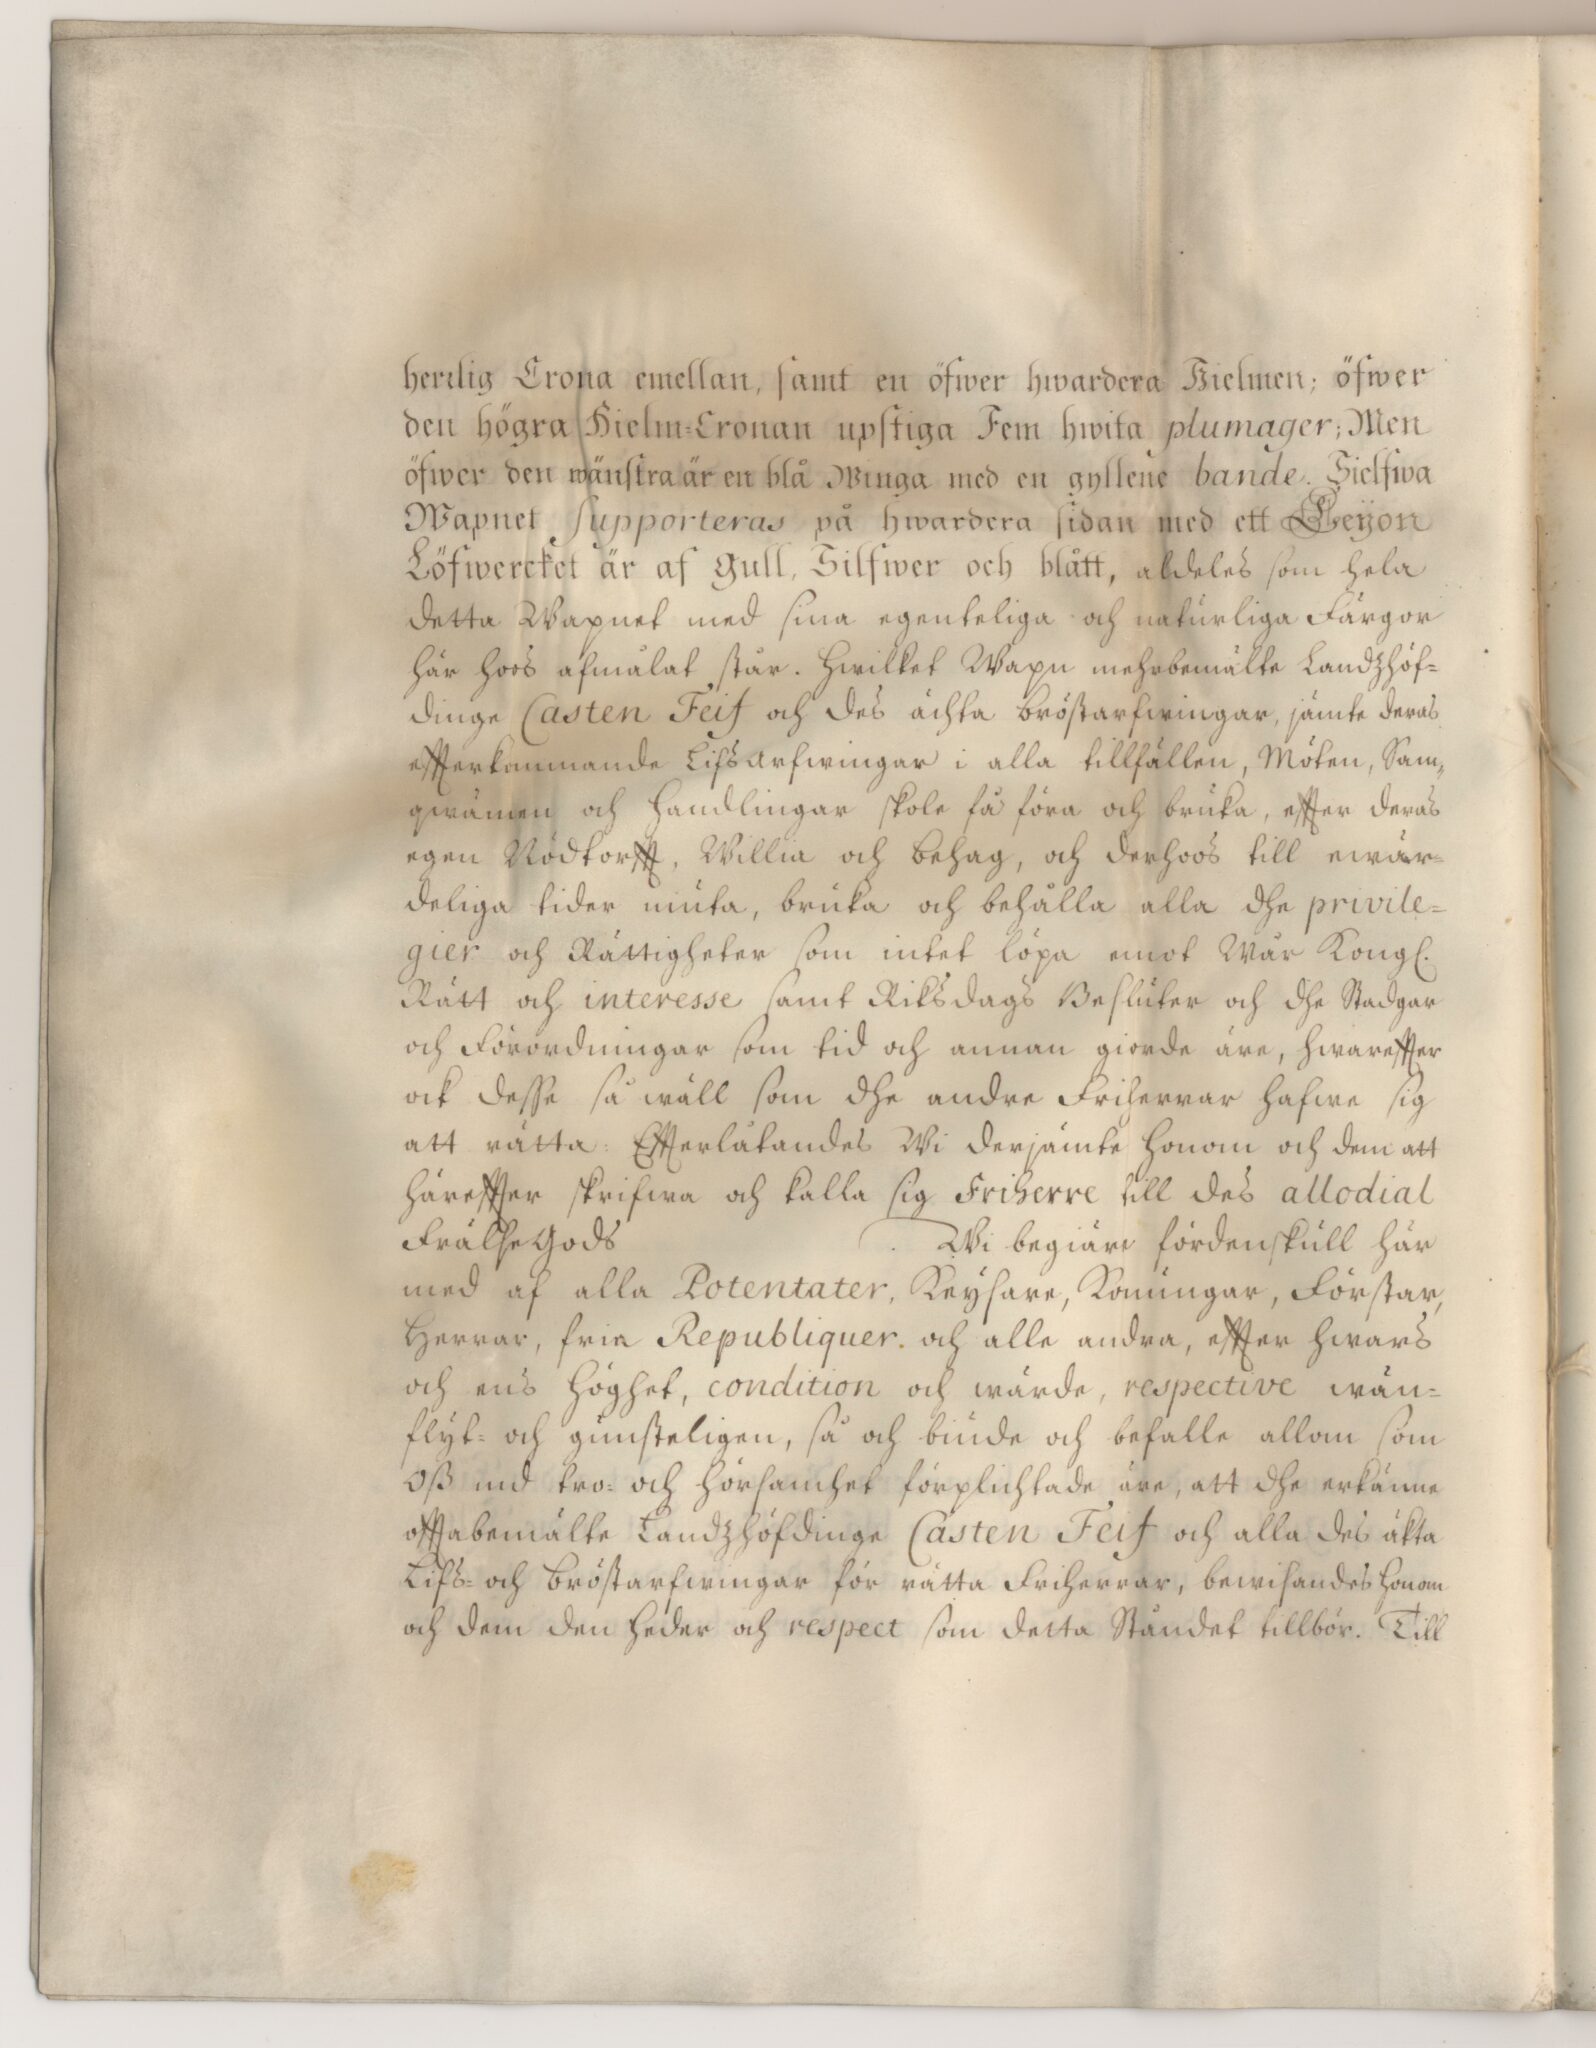 herrlig Crona emellan, samt en öfwer hwardera Hielmen; öfwer
den högra Hielm=Cronan upstiga Fem hwita plumager; Men
öfwer den wänstra är en blå Winga med en gyllene bande. Sielfwa
Wapnet supporteras på hwardera sidan med ett Leyon
Löfwercket är af Gull, Silfwer och blått, aldeles som hela
detta Wapnet med sina egenteliga och naturliga Färgor
här hoos afmålat står. Hwilket Wapn mehrbemälte Landzhöf=
dinge Casten Feif och des ächta bröstarfwingar, jämte deras
effterkommande Lifsarfwingar i alla tillfällen, Möten, Sam=
qwämen och Handlingar skole få föra och bruka, effter deras
egen Nödtorfft, Willia och behag, och derhoos till ewär=
deliga tider niuta, bruka och behålla alla dhe privile=
gier och Rättigheter som intet löpa emot Wår Kongl.
Rätt och interesse samt Riksdags Besluter och dhe Stadgar
och Förordningar som tid och annan giorde äre, hwareffter
ock desse så wäll som dhe andre Friherrar hafwe sig
att rätta: Effterlåtandes Wi derjämte honom och dem att
häreffter skrifwa och kalla sig Friherre till des allodial
Frälse Gods Wi begiäre fördenskull här
med af alla Potentater, Keysare, Konungar, Förstar,
Herrar, fria Republiquer. och alle andra, effter hwars
och ens höghet, condition och wärde, respective wän=
flyt= och gunsteligen, så och biude och befalle allom som
Oß med tro= och hörsamhet förplichtade äre, att dhe erkänne
offtabemälte Landzhöfdinge Casten Feif och alla des äkta
Lifs= och bröstarfwingar för rätta Friherrar, bewisandes honom
och dem den heder och respect som detta Ståndet tillbör. Till